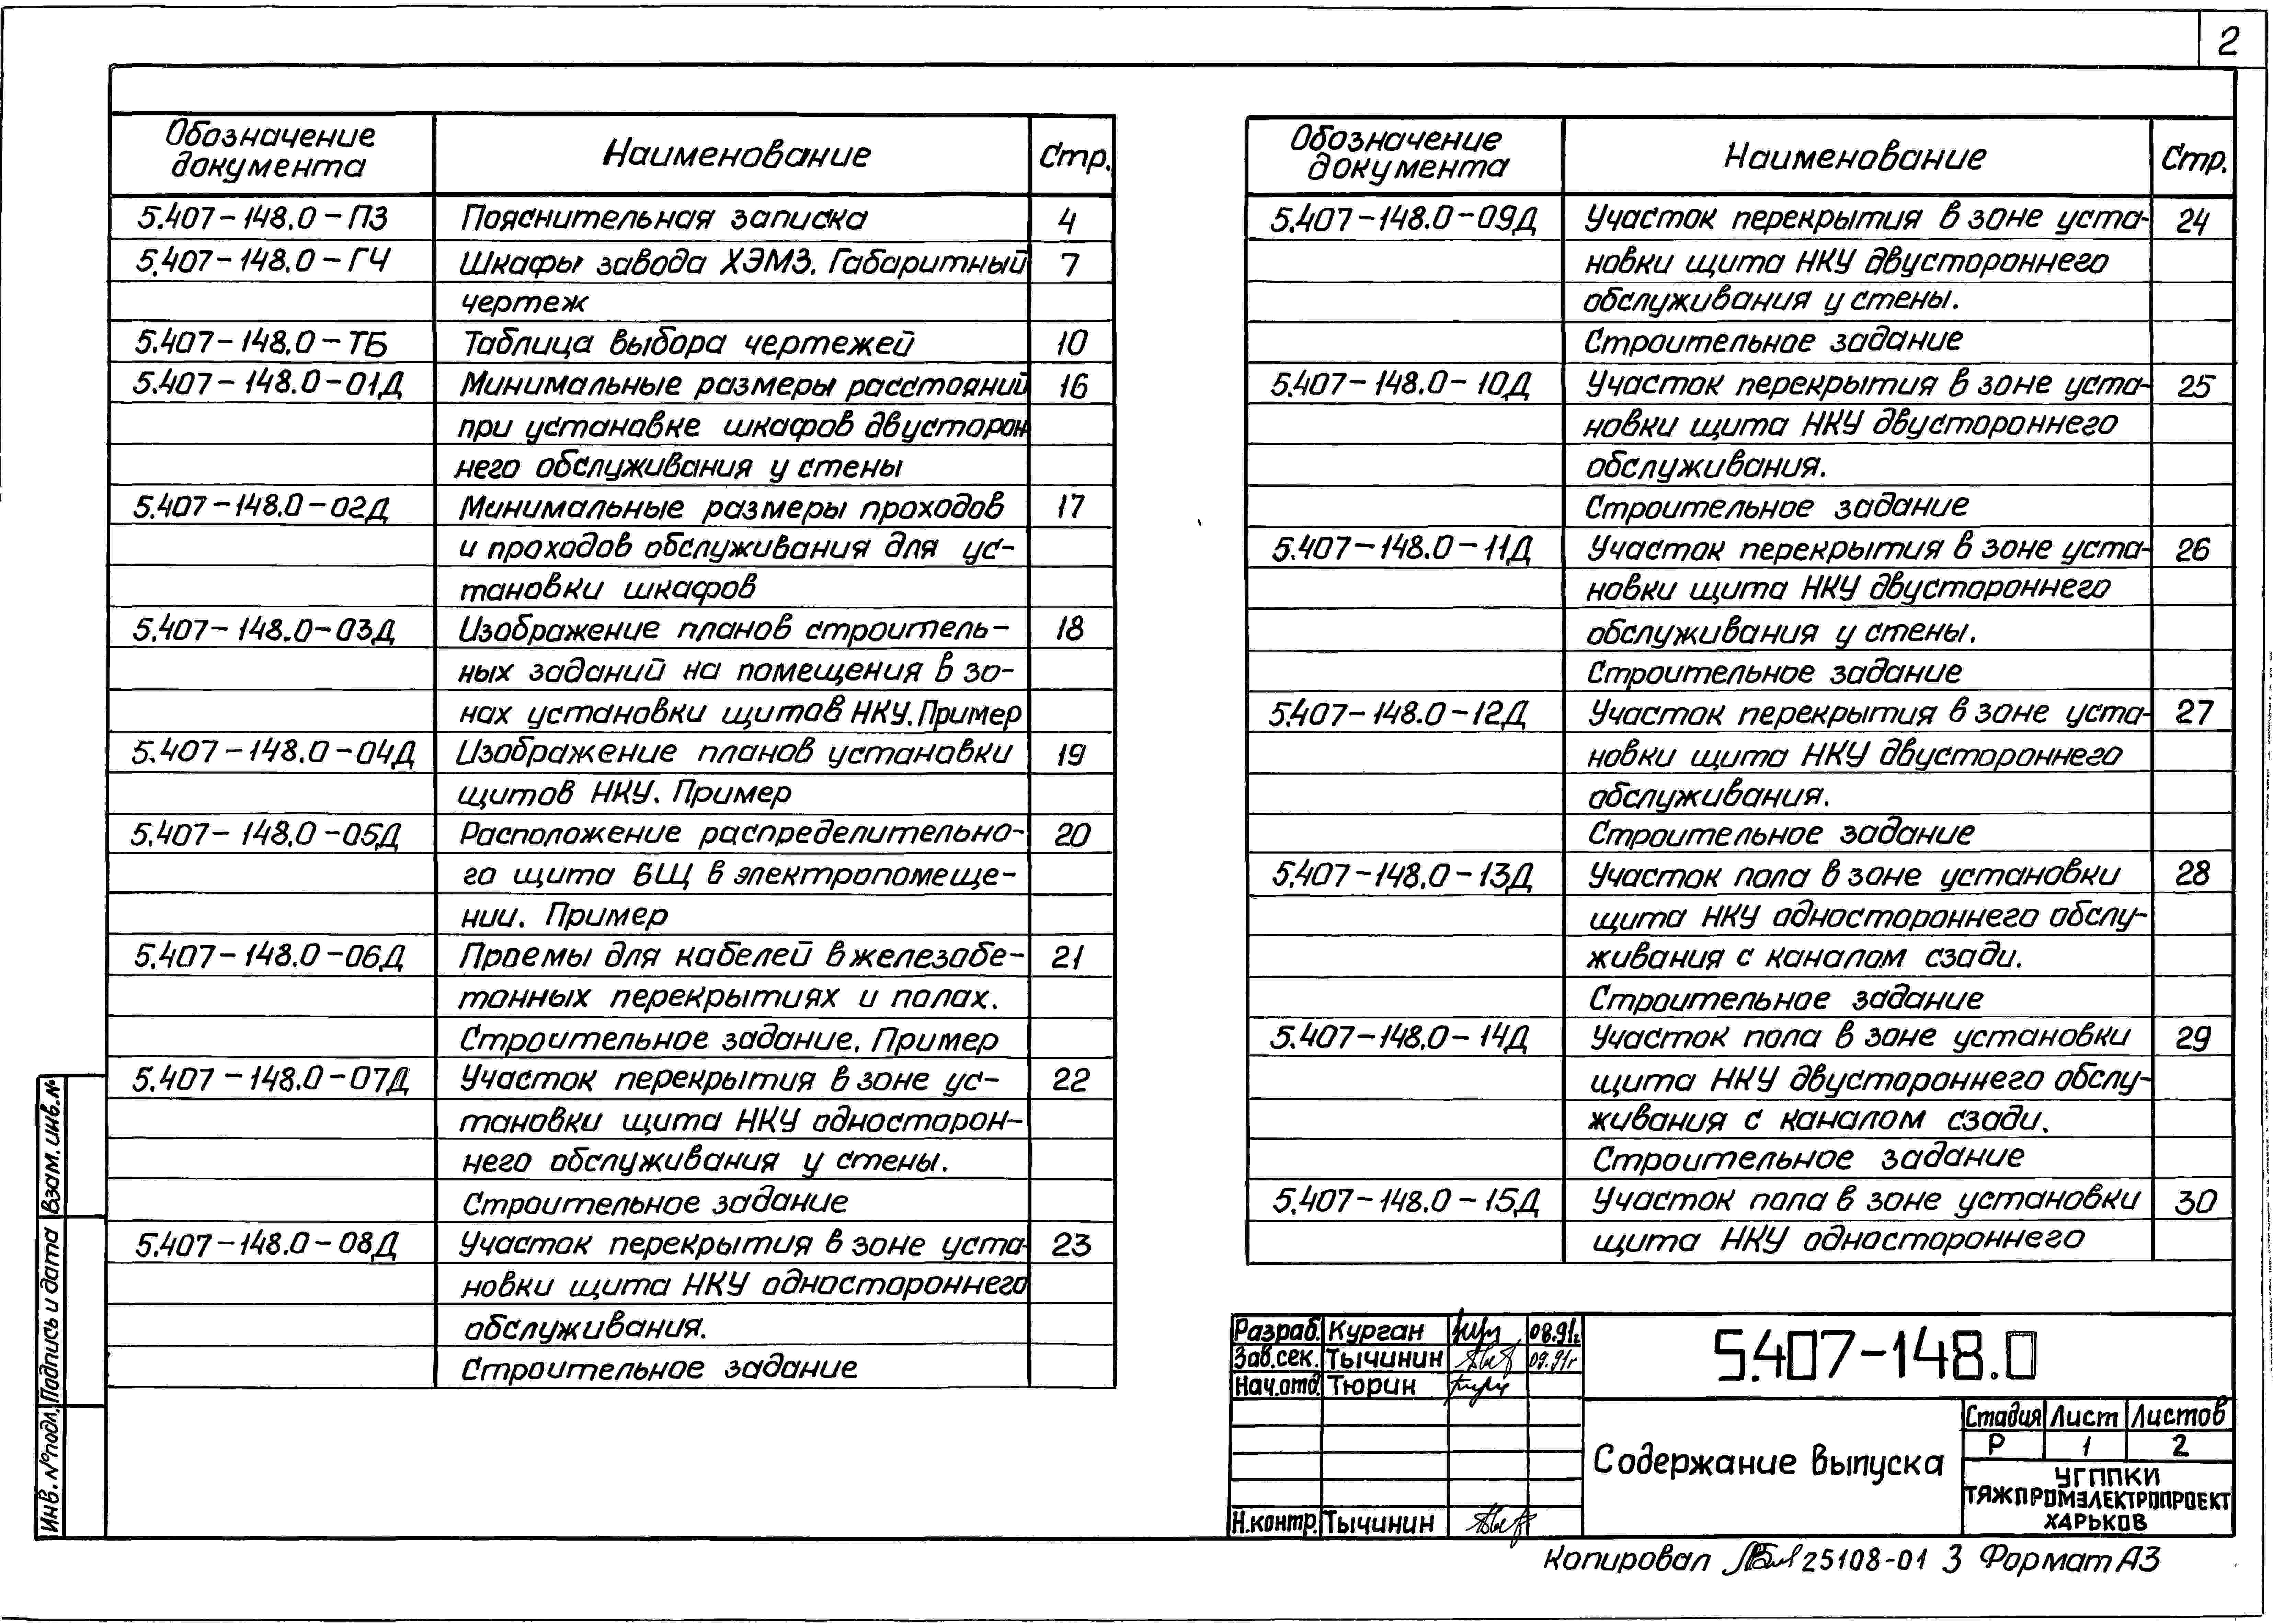 2
Обозначение документа Наименование Стр.
5.407-148.0-ПЗ Пояснительная записка 4
5.407-148.0-ГЧ Шкафы завода ХЭМЗ. Габаритный 7
чертеж
5.407-148.0-ТБ Таблица выбора чертежей 10
5.407-148.0-01Д Минимальные размеры расстояний 16
при установке шкафов двусторон
него обслуживания у стены
5.407-148.0-02Д Минимальные размеры проходов 17
и проходов обслуживания для ус-
тановки шкафов
5.407-148.0-03Д Изображение планов строитель- 18
ных заданий на помещения в зо-
нах установки щитов НКУ. Пример
5.407-148.0-04Д Изображение планов установки 19
щитов НКУ. Пример
5.407-148.0-05Д Расположение распределительно- 20
го щита БЩ в электропомеще-
нии. Пример
5.407-148.0-06Д Проемы для кабелей в железобе- 21
тонных перекрытиях и полах.
Строительное задание. Пример
5.407-148.0-07Д Участок перекрытия в зоне ус- 22
тановки щита НКУ односторон-
него обслуживания у стены.
Строительное задание
5.407-148.0-08Д Участок перекрытия в зоне уста- 23
новки щита НКУ одностороннего
обслуживания.
Строительное задание
Обозначение документа Наименование Стр.
5.407-148.0-09Д Участок перекрытия в зоне уста- 24
новки щита НКУ двустороннего
обслуживания у стены.
Строительное задание
5.407-148.0-10Д Участок перекрытия в зоне уста- 25
новки щита НКУ двустороннего
обслуживания.
Строительное задание
5.407-148.0-11Д Участок перекрытия в зоне уста- 26
новки щита НКУ двустороннего
обслуживания у стены.
Строительное задание
5.407-148.0-12Д Участок перекрытия в зоне уста- 27
новки щита НКУ двустороннего
обслуживания.
Строительное задание
5.407-148.0-13Д Участок пола в зоне установки 28
щита НКУ одностороннего обслу-
живания с каналом сзади.
Строительное задание
5.407-148.0-14Д Участок пола в зоне установки 29
щита НКУ двустороннего обслу-
живания с каналом сзади.
Строительное задание
5.407-148.0-15Д Участок пола в зоне установки 30
щита НКУ одностороннего
Взам. инв. №
Подпись и дата
Инв. № подл.
Разраб. Курган 08.91г.
Зав. сек. Тычинин 09.91г
Нач. отд. Тюрин
Н. контр. Тычинин
5.407-148.0
Содержание выпуска
Стадия Лист Листов
Р 1 2
УГППКИ
ТЯЖПРОМЭЛЕКТРОПРОЕКТ
ХАРЬКОВ
Копировал 25108-01 3 Формат А3